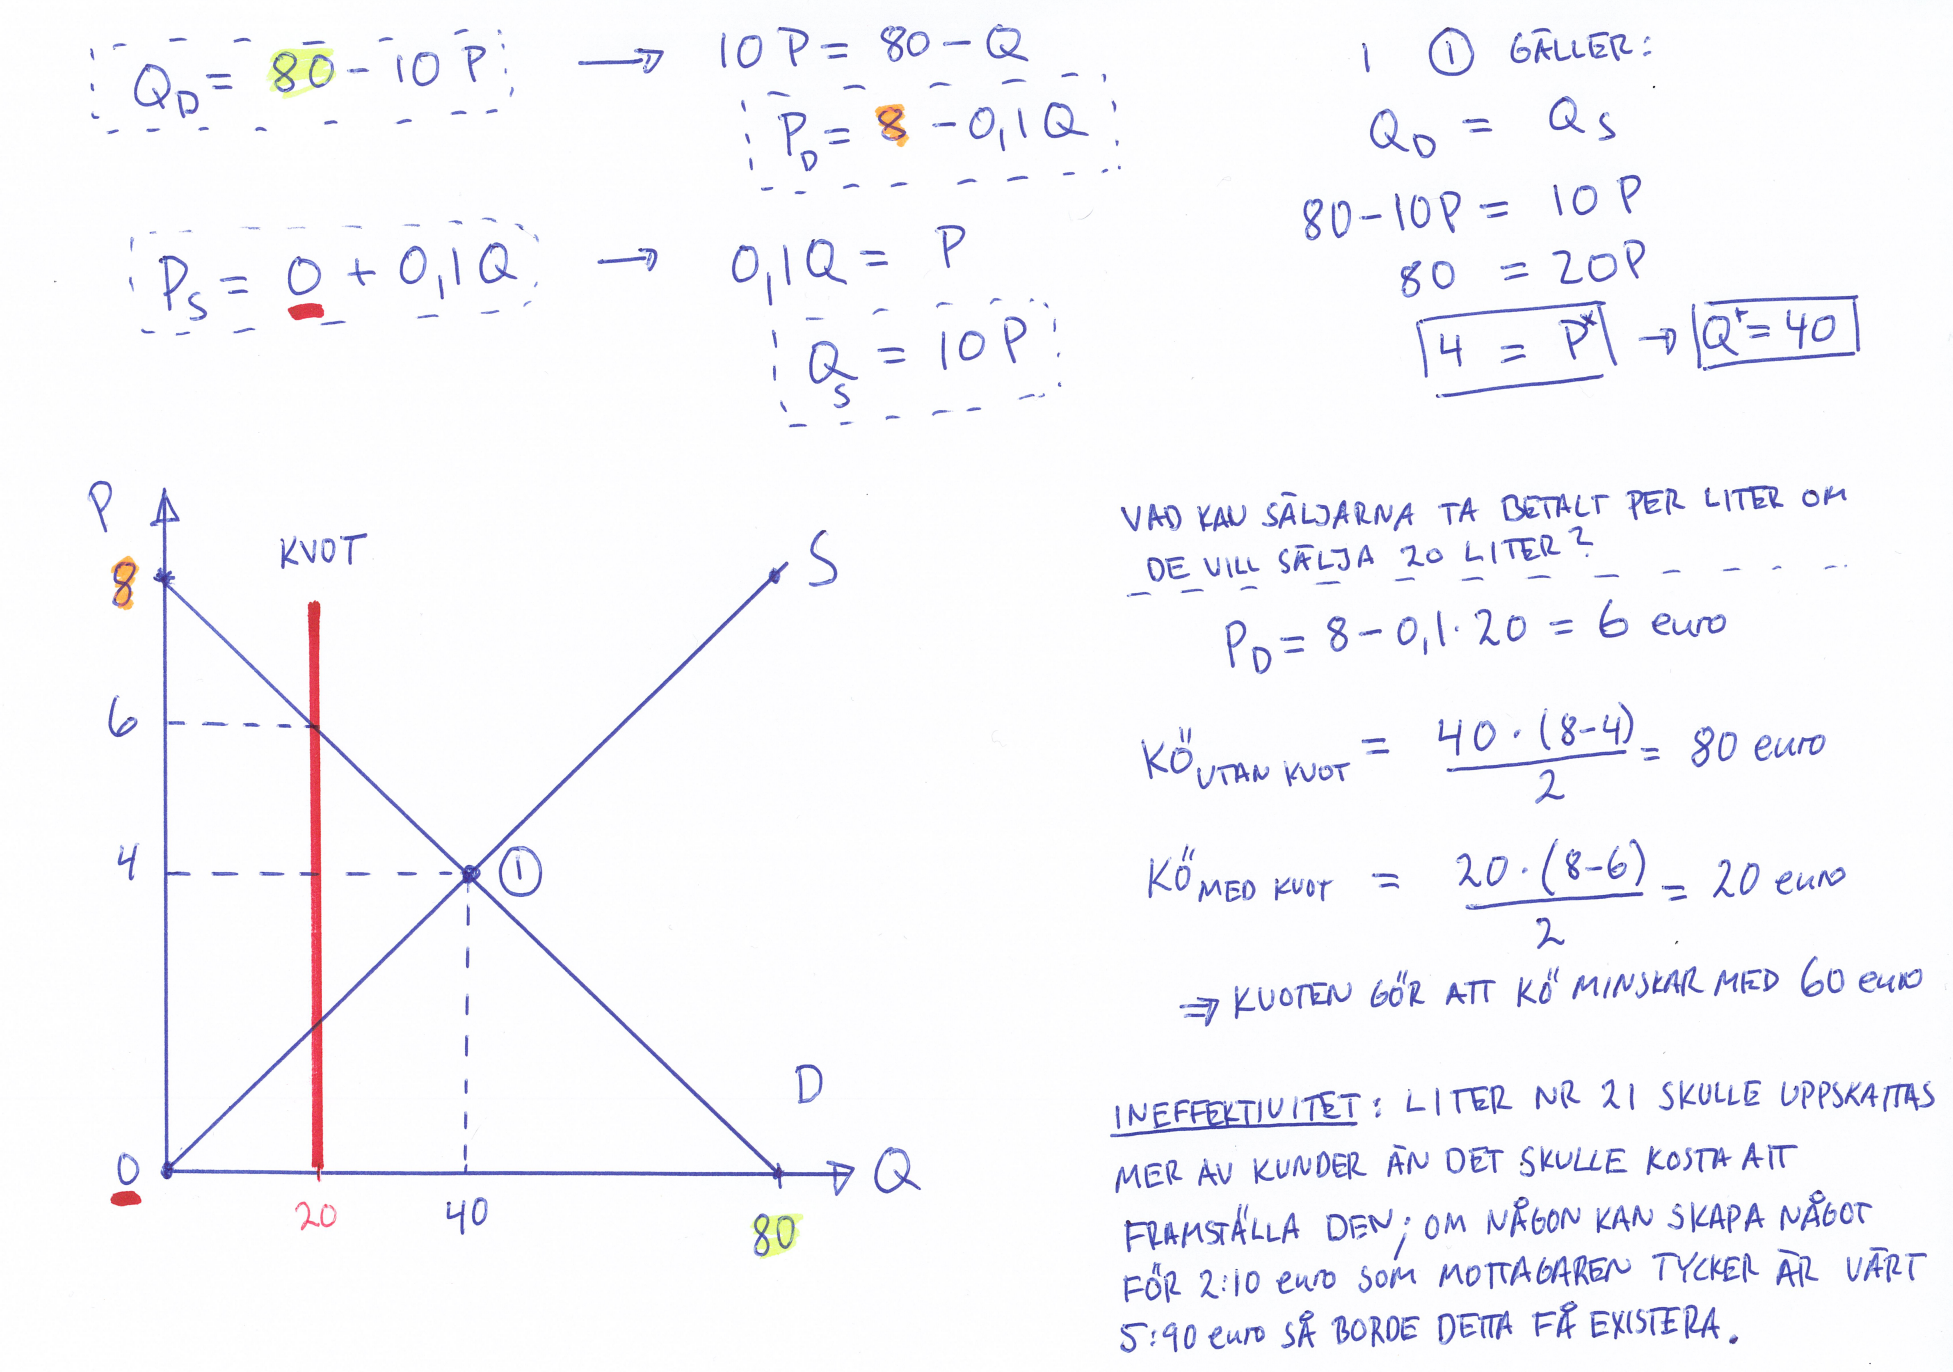 Q_D = 80 - 10 P → 10 P = 80 - Q
P_D = 8 - 0,1 Q
P_S = 0 + 0,1 Q → 0,1 Q = P
Q_S = 10 P
I ① GÄLLER:
Q_D = Q_S
80 - 10P = 10 P
80 = 20P
4 = P* → Q* = 40
P
KVOT
8
S
6
4
①
D
0
Q
20
40
80
VAD KAN SÄLJARNA TA BETALT PER LITER OM
DE VILL SÄLJA 20 LITER?
P_D = 8 - 0,1 · 20 = 6 euro
KÖ UTAN KVOT = 40 · (8-4) / 2 = 80 euro
KÖ MED KVOT = 20 · (8-6) / 2 = 20 euro
⇒ KVOTEN GÖR ATT KÖ MINSKAR MED 60 euro
INEFFEKTIVITET: LITER NR 21 SKULLE UPPSKATTAS
MER AV KUNDER ÄN DET SKULLE KOSTA ATT
FRAMSTÄLLA DEN; OM NÅGON KAN SKAPA NÅGOT
FÖR 2:10 euro SOM MOTTAGAREN TYCKER ÄR VÄRT
5:90 euro SÅ BORDE DETTA FÅ EXISTERA.